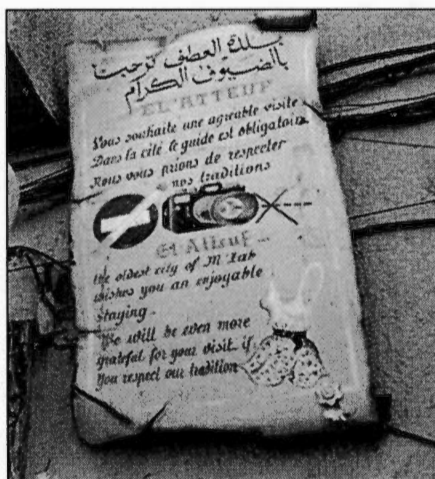 بلدة العطف ترحب
بالضيوف الكرام
EL'ATTEUF
Vous souhaite une agreable visite
Dans la cité le guide est obligatoire
Nous vous prions de respecter
nos traditions
El Atteuf ...
the oldest city of M'Zab
wishes you an enjoyable
staying.
We will be even more
grateful for your visit if
you respect our tradition